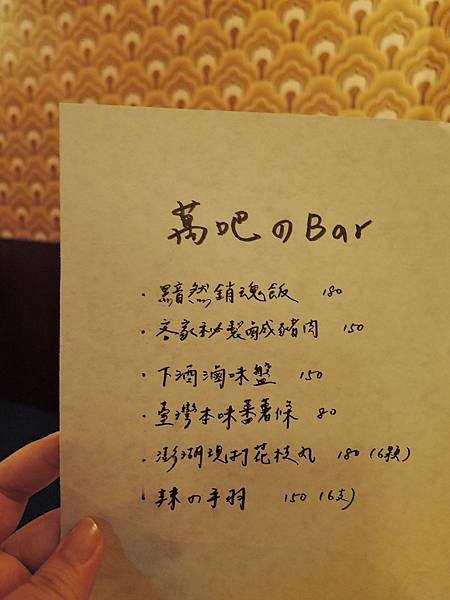 萬吧のBar
· 黯然銷魂飯 180
· 客家秘製鹹豬肉 150
· 下酒滷味盤 150
· 臺灣本味番薯條 80
· 澎湖現打花枝丸 180 (6顆)
· 辣の手羽 150 (6支)